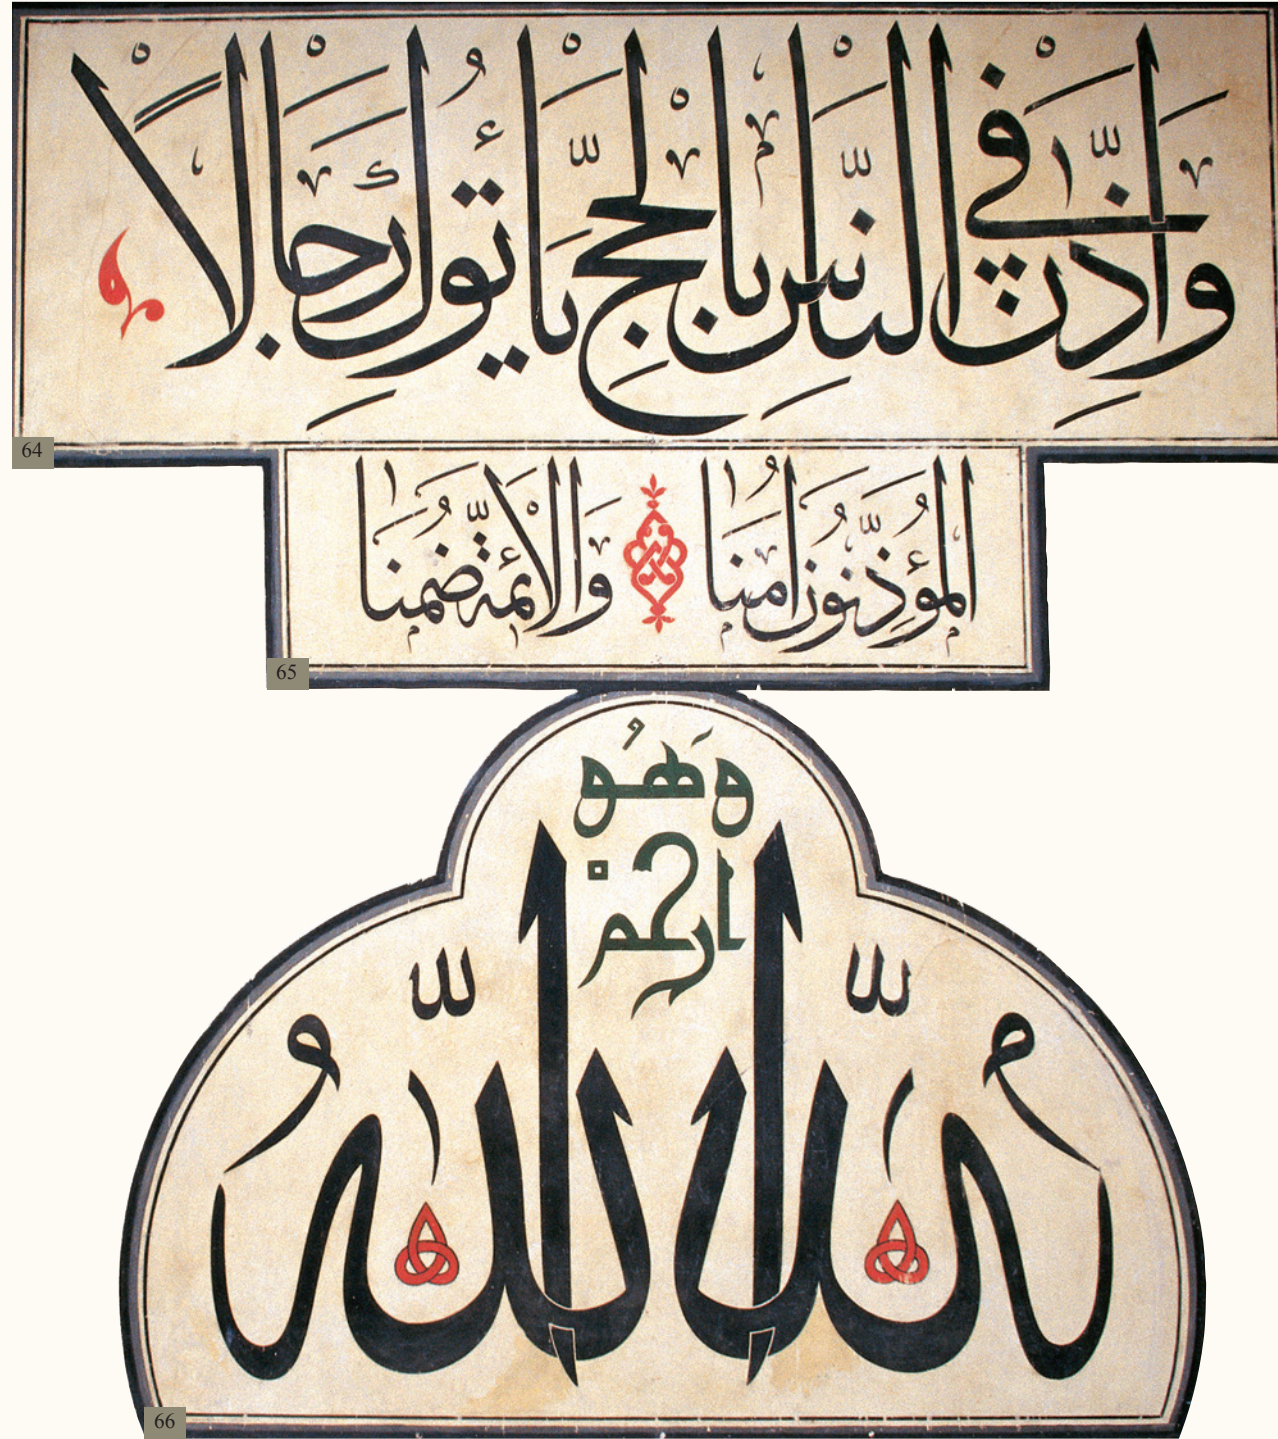 وَاَذِّنْ فِي النَّاسِ بِالْحَجِّ يَأْتُوكَ رِجَالًا
64
اَلْمُؤَذِّنُونَ اُمَنَا وَالْاَئِمَّةُ ضُمَنَا
65
وَهُوَ
ارحم
الله الله
66